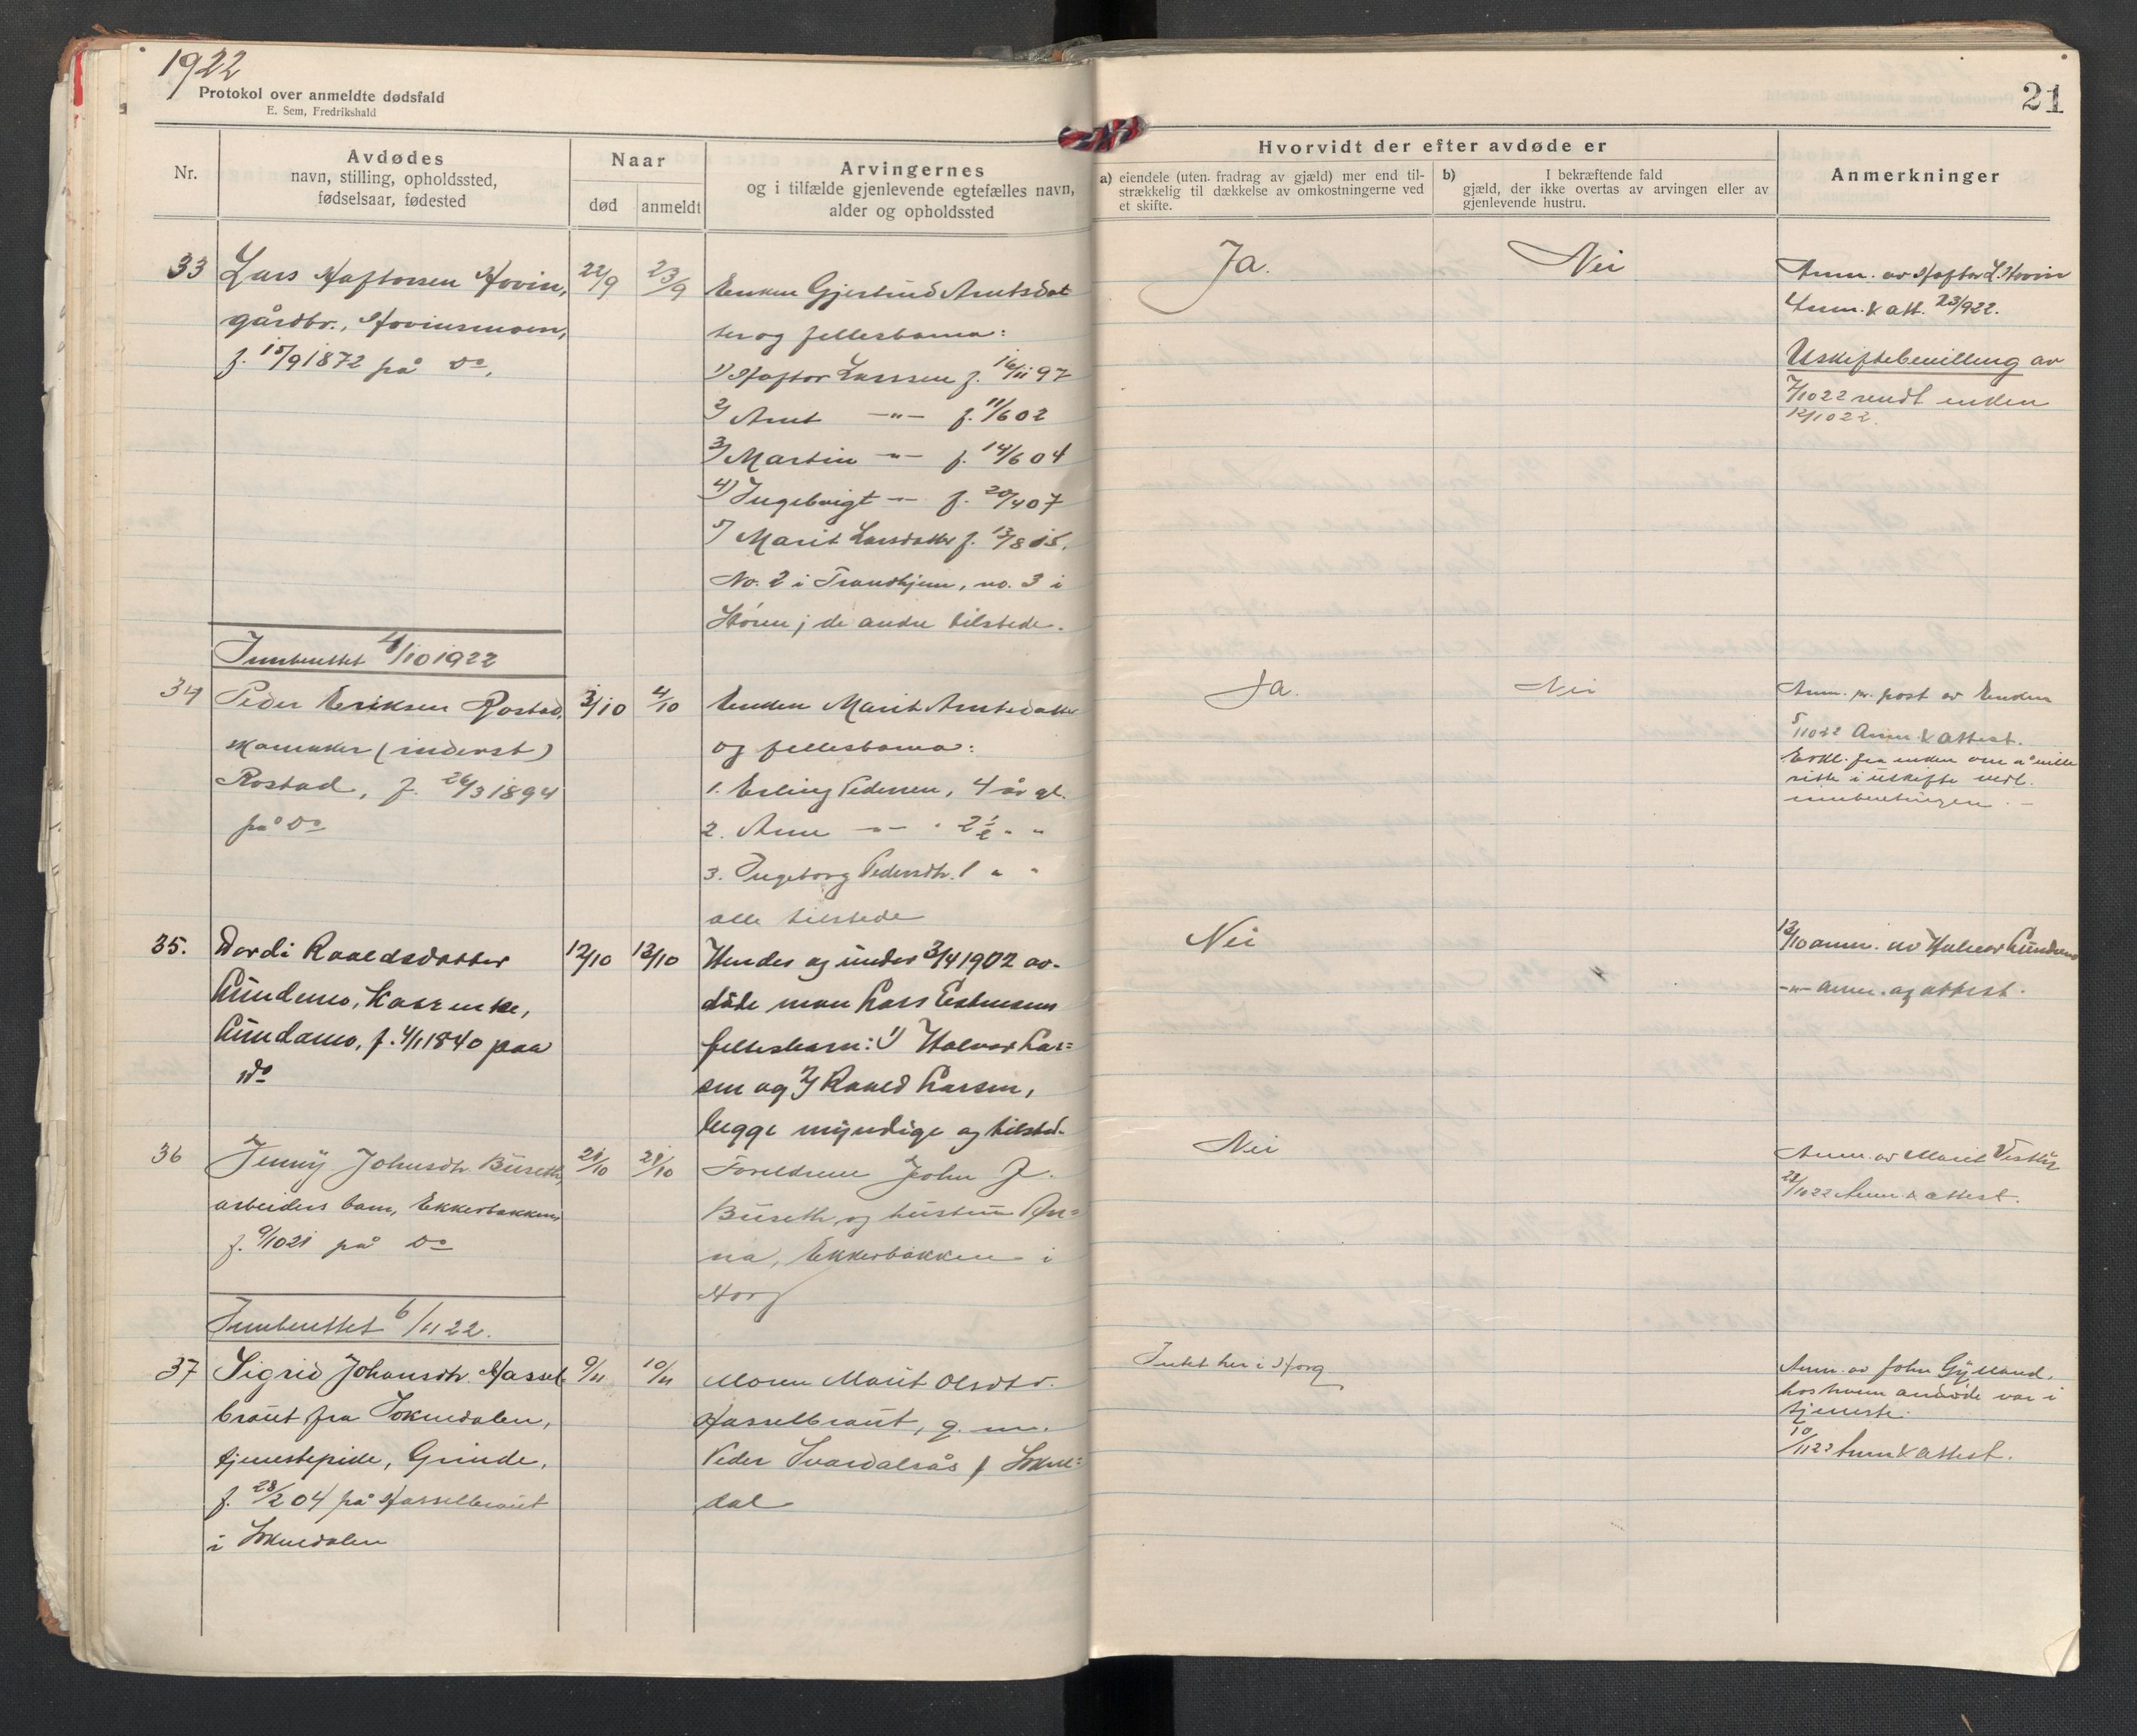 1922
Protokol over anmeldte dødsfald
E. Sem, Fredrikshald
21
Nr.
Avdødes
navn, stilling, opholdssted,
fødselsaar, fødested
Naar
død
anmeldt
Arvingernes
og i tilfælde gjenlevende egtefælles navn,
alder og opholdssted
Hvorvidt der efter avdøde er
a) eiendele (uten fradrag av gjæld) mer end til-
strækkelig til dækkelse av omkostningerne ved
et skifte.
b) I bekræftende fald
gjæld, der ikke overtas av arvingen eller av
gjenlevende hustru.
Anmerkninger
33
Lars Haftorsen Hovin,
gårdbr., Hovinsmoen,
f. 15/9 1872 på do,
22/9
23/9
Enken Gjertrud Arntsdat
ter og fellesbarna:
1) Haftor Larssen f. 16/11 97
2) Arnt -"- f. 11/6 02
3) Martin -"- f. 14/6 04
4) Ingebrigt -"- f. 20/4 07
5) Marit Larsdatter f. 13/8 15.
No. 2 i Trondhjem, no. 3 i
Støren; de andre tilstede.
Ja.
Nei
Anm. av Haftor L. Hovin
Anm. & att. 23/9 22.
Uskiftebevilling av
7/10 22 sendt enken
12/10 22.
Innberettet 4/10 1922
34
Peder Eriksen Rostad,
skomaker (inderst)
Rostad, f. 26/3 1894
på do
3/10
4/10
Enken Marit Arntsdatter
og fellesbarna:
1. Erling Pedersen, 4 år gl.
2. Arne -"- " 2½ " "
3. Ingeborg Pedersdtr. 1 " "
alle tilstede
Ja.
Nei
Anm. pr. post av Enken
5/10 22 Anm. & attest.
Erkl. fra enken om å ville
sitte i uskifte vedl.
innberetningen. -
35.
Dordi Roaldsdatter
Lundemo, Kaarenke,
Lundamo, f. 4/1 1840 paa
do
12/10
13/10
Hendes og under 3/4 1902 av-
døde man Lars Estensens
fellesbarn: 1) Halvor Lar=
sen og 2) Roald Larsen,
begge myndige og tilsted.
Nei
13/10 anm. av Halvor Lundemo
-"- anm. og attest.
36
Jenny Johnsdtr. Buseth,
arbeiders barn, Ekkerbakken,
f. 9/10 21 på do
21/10
Foreldrene John J.
Buseth og hustru An=
na, Ekkerbakken i
Horg
Nei
Anm. av Marit
Anm. & attest.
Innberettet 6/11 22.
37
Sigrid Johansdtr. Hassel
braut fra Soknedalen,
tjenestepike, Grinde,
f. 28/2 04 på Hasselbraut
i Soknedalen
9/11
10/11
Moren Marit Olsdtr.
Hasselbraut, g. m.
Peder Svardalsås i Sokne=
dal
Intet her i Horg
Anm. av John Gylland,
hos hvem avdøde var i
tjeneste.
10/11 22 Anm & attest.